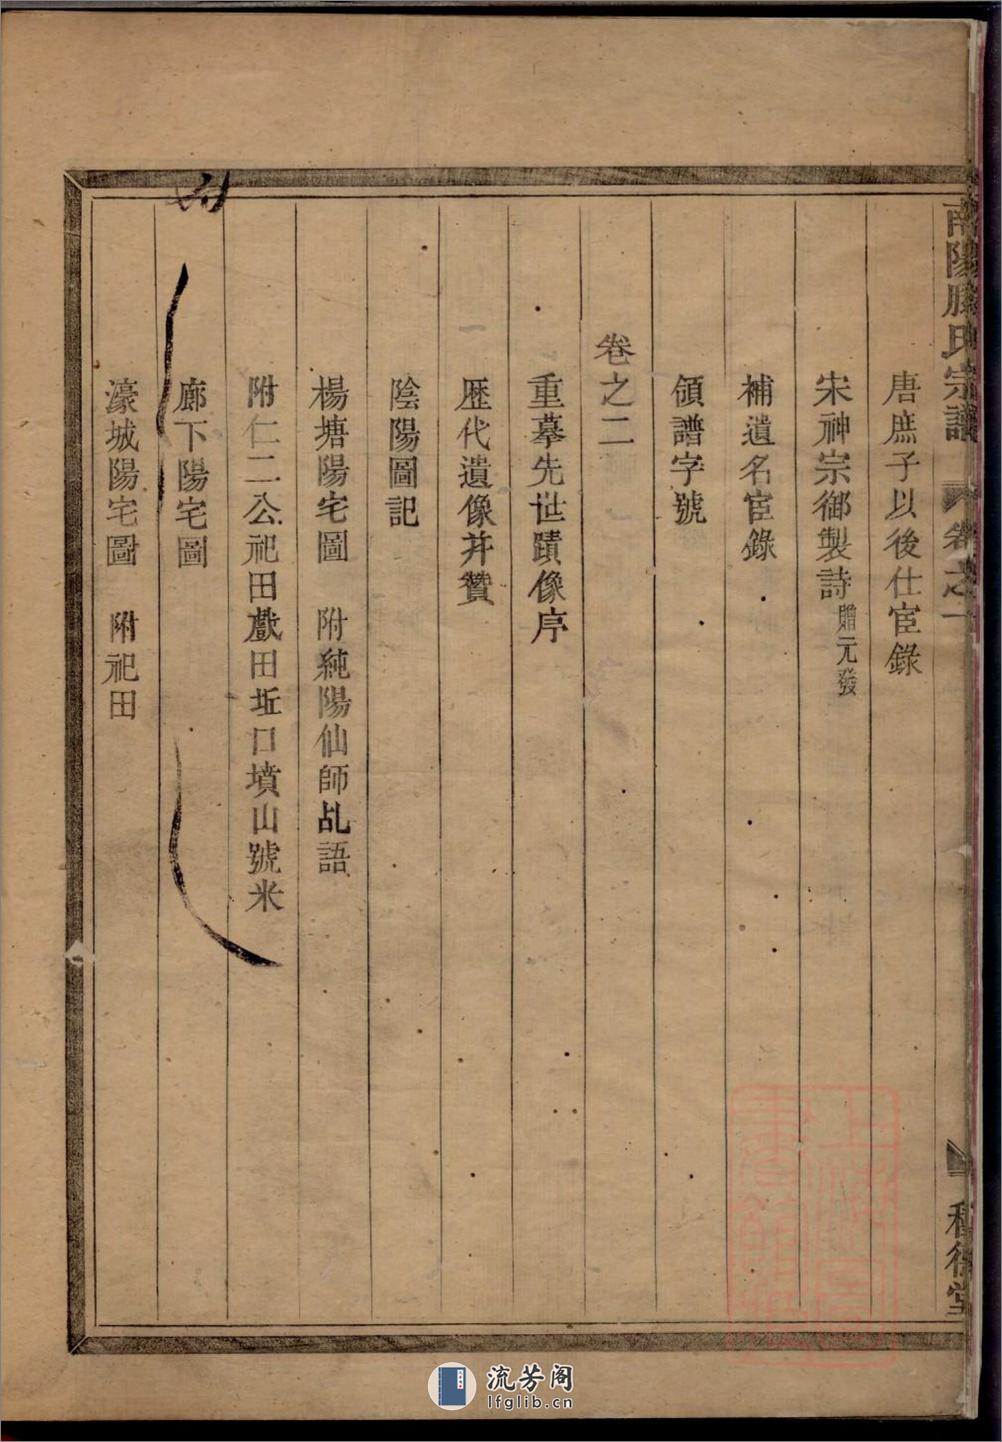 南陽滕氏宗譜 卷之一 種德堂
唐庶子以後仕宦錄
宋神宗御製詩 贈元發
補遺名宦錄
領譜字號
卷之二
重摹先世蹟像序
歷代遺像并贊
陰陽圖記
楊塘陽宅圖 附純陽仙師乩語
附仁二公祀田戲田坵口墳山號米
廊下陽宅圖
濠城陽宅圖 附祀田
流芳阁
lfglib.cn